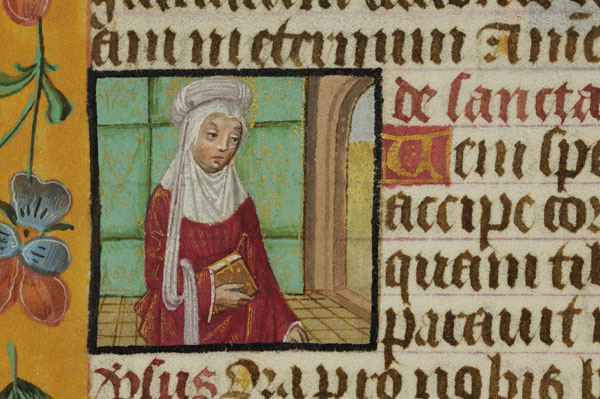 am in eternum Ame
de sancta
Ueni spo
accipe cor
quam tib
parauit
Ora pro nobis b